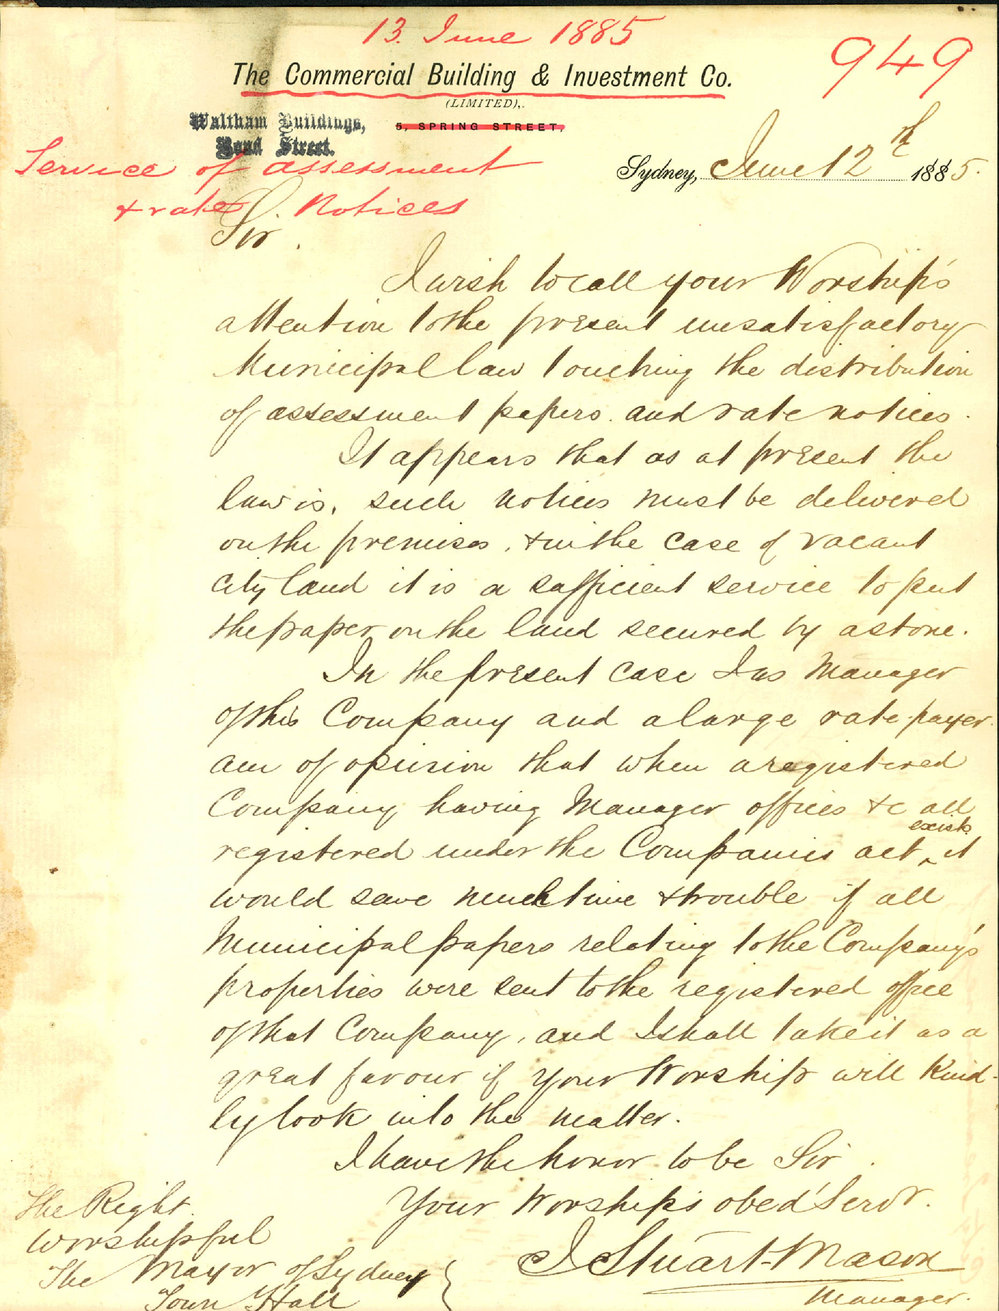 13. June 1885
949
The Commercial Building & Investment Co.
(LIMITED),
Waltham Buildings,
Bond Street.
5, SPRING STREET,
Service of assessment
& rate Notices
Sydney, June 12th 1885.
Sir.
I wish to call your Worship's
attention to the present unsatisfactory
Municipal law touching the distribution
of assessment papers and rate notices.
It appears that as at present the
law is, such notices must be delivered
on the premises, & in the case of vacant
city land it is a sufficient service to put
the paper on the land secured by a stone.
In the present case I as Manager
of this Company and a large rate-payer
am of opinion that when a registered
Company having Manager offices &c all
registered under the Companies act exist it
would save much time & trouble if all
Municipal papers relating to the Company's
properties were sent to the registered office
of that Company, and I shall take it as a
great favour if your Worship will kind-
ly look into the matter.
I have the honor to be Sir
Your Worship's obed Servt.
J Stuart-Mason
Manager.
The Right
Worshipful
The Mayor of Sydney
Town Hall